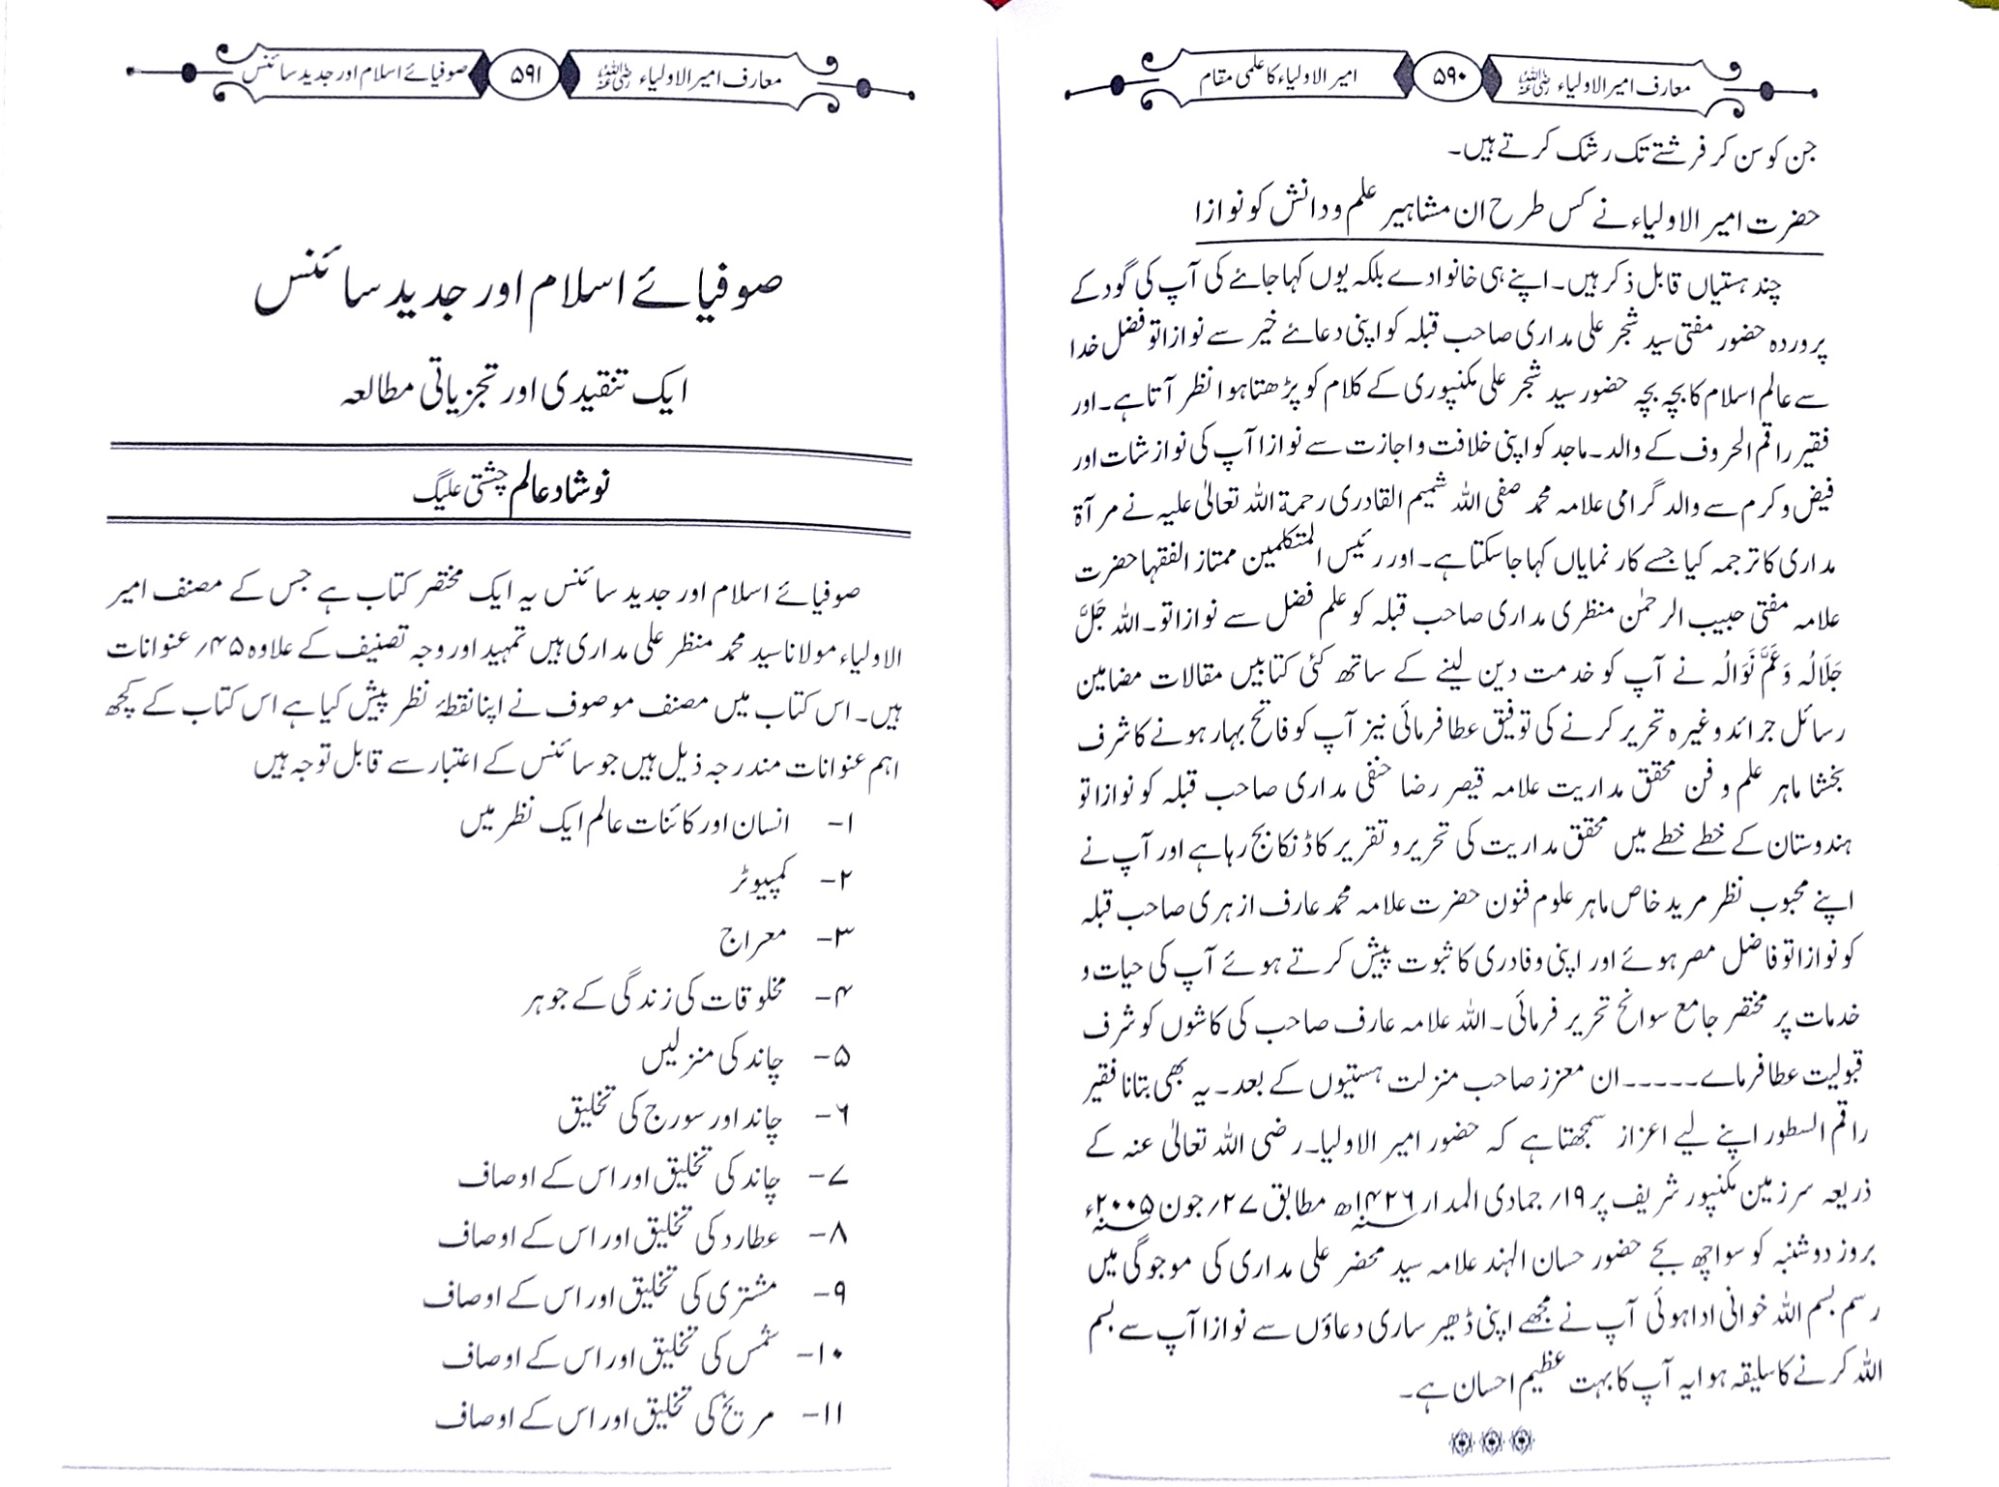 معارف امیر الاولیاء رضی اللہ عنہ ۵۹۰ امیر الاولیاء کا علمی مقام
جن کو سن کر فرشتے تک رشک کرتے ہیں۔
حضرت امیر الاولیاء نے کس طرح ان مشاہیر علم و دانش کو نوازا
چند ہستیاں قابل ذکر ہیں۔ اپنے ہی خانوادے بلکہ یوں کہا جائے کی آپ کی گود کے
پروردہ حضور مفتی سید شجر علی مداری صاحب قبلہ کو اپنی دعائے خیر سے نوازا تو فضل خدا
سے عالم اسلام کا بچہ بچہ حضور سید شجر علی مکنپوری کے کلام کو پڑھتا ہوا نظر آتا ہے۔ اور
فقیر راقم الحروف کے والد۔ ماجد کو اپنی خلافت و اجازت سے نوازا آپ کی نوازشات اور
فیض و کرم سے والد گرامی علامہ محمد صفی اللہ شمیم القادری رحمۃ اللہ تعالیٰ علیہ نے مرآۃ
مداری کا ترجمہ کیا جسے کار نمایاں کہا جاسکتا ہے۔ اور رئیس المتکلمین ممتاز الفقہا حضرت
علامہ مفتی حبیب الرحمٰن منظری مداری صاحب قبلہ کو علم فضل سے نوازا تو۔ اللہ جَلَّ
جَلَالُہ وَعَمَّ نَوَالُہ نے آپ کو خدمت دین لینے کے ساتھ کئی کتابیں مقالات مضامین
رسائل جرائد وغیرہ تحریر کرنے کی توفیق عطا فرمائی نیز آپ کو فاتح بہار ہونے کا شرف
بخشا ماہر علم و فن محقق مداریت علامہ قیصر رضا حنفی مداری صاحب قبلہ کو نوازا تو
ہندوستان کے خطے خطے میں محقق مداریت کی تحریر و تقریر کا ڈنکا بج رہا ہے اور آپ نے
اپنے محبوب نظر مرید خاص ماہر علوم فنون حضرت علامہ محمد عارف ازہری صاحب قبلہ
کو نوازا تو فاضل مصر ہوئے اور اپنی وفاداری کا ثبوت پیش کرتے ہوئے آپ کی حیات و
خدمات پر مختصر جامع سوانح تحریر فرمائی۔ اللہ علامہ عارف صاحب کی کاشوں کو شرف
قبولیت عطا فرماے۔۔۔۔۔ ان معزز صاحب منزلت ہستیوں کے بعد۔ یہ بھی بتانا فقیر
راقم السطور اپنے لیے اعزاز سمجھتا ہے کہ حضور امیر الاولیا۔ رضی اللہ تعالیٰ عنہ کے
ذریعہ سرزمین مکنپور شریف پر ۱۹؍ جمادی المدار ۱۴۲۶ھ مطابق ۲۷؍ جون ۲۰۰۵ء
بروز دوشنبہ کو سوا چھ بجے حضور حسان الہند علامہ سید محضر علی مداری کی موجوگی میں
رسم بسم اللہ خوانی ادا ہوئی آپ نے مجھے اپنی ڈھیر ساری دعاؤں سے نوازا آپ سے بسم
اللہ کرنے کا سلیقہ ہوا یہ آپ کا بہت عظیم احسان ہے۔
معارف امیر الاولیاء رضی اللہ عنہ ۵۹۱ صوفیائے اسلام اور جدید سائنس
صوفیائے اسلام اور جدید سائنس
ایک تنقیدی اور تجزیاتی مطالعہ
نوشاد عالم چشتی علیگ
صوفیائے اسلام اور جدید سائنس یہ ایک مختصر کتاب ہے جس کے مصنف امیر
الاولیاء مولانا سید محمد منظر علی مداری ہیں تمہید اور وجہ تصنیف کے علاوہ ۴۵؍ عنوانات
ہیں۔ اس کتاب میں مصنف موصوف نے اپنا نقطۂ نظر پیش کیا ہے اس کتاب کے کچھ
اہم عنوانات مندرجہ ذیل ہیں جو سائنس کے اعتبار سے قابل توجہ ہیں
۱- انسان اور کائنات عالم ایک نظر میں
۲- کمپیوٹر
۳- معراج
۴- مخلوقات کی زندگی کے جوہر
۵- چاند کی منزلیں
۶- چاند اور سورج کی تخلیق
۷- چاند کی تخلیق اور اس کے اوصاف
۸- عطارد کی تخلیق اور اس کے اوصاف
۹- مشتری کی تخلیق اور اس کے اوصاف
۱۰- شمس کی تخلیق اور اس کے اوصاف
۱۱- مریخ کی تخلیق اور اس کے اوصاف